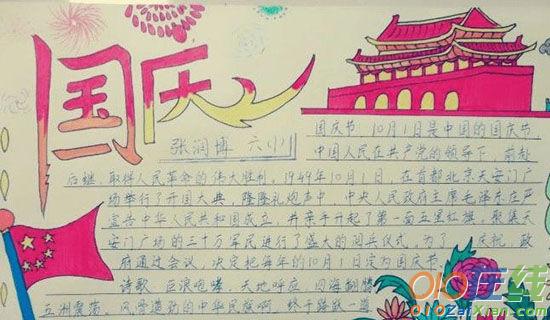 国庆
张润博 六(1)
国庆节，10月1日是中国的国庆节，
中国人民在共产党的领导下，前赴
后继，取得人民革命的伟大胜利，1949年10月1日，在首都北京天安门广
场举行了开国大典，隆隆礼炮声中，中央人民政府主席毛泽东庄严
宣告中华人民共和国成立，并亲手升起了第一面五星红旗，聚集天
安门广场的三十万军民进行了盛大的阅兵仪式，为了 庆祝，政
府通过会议，决定把每年的10月1日定为国庆节。
诗歌 巨浪咆哮，天地呼应 四海翻腾
五洲震荡，风雪造就的中华民族啊 终于
在线
ZaiXian.com